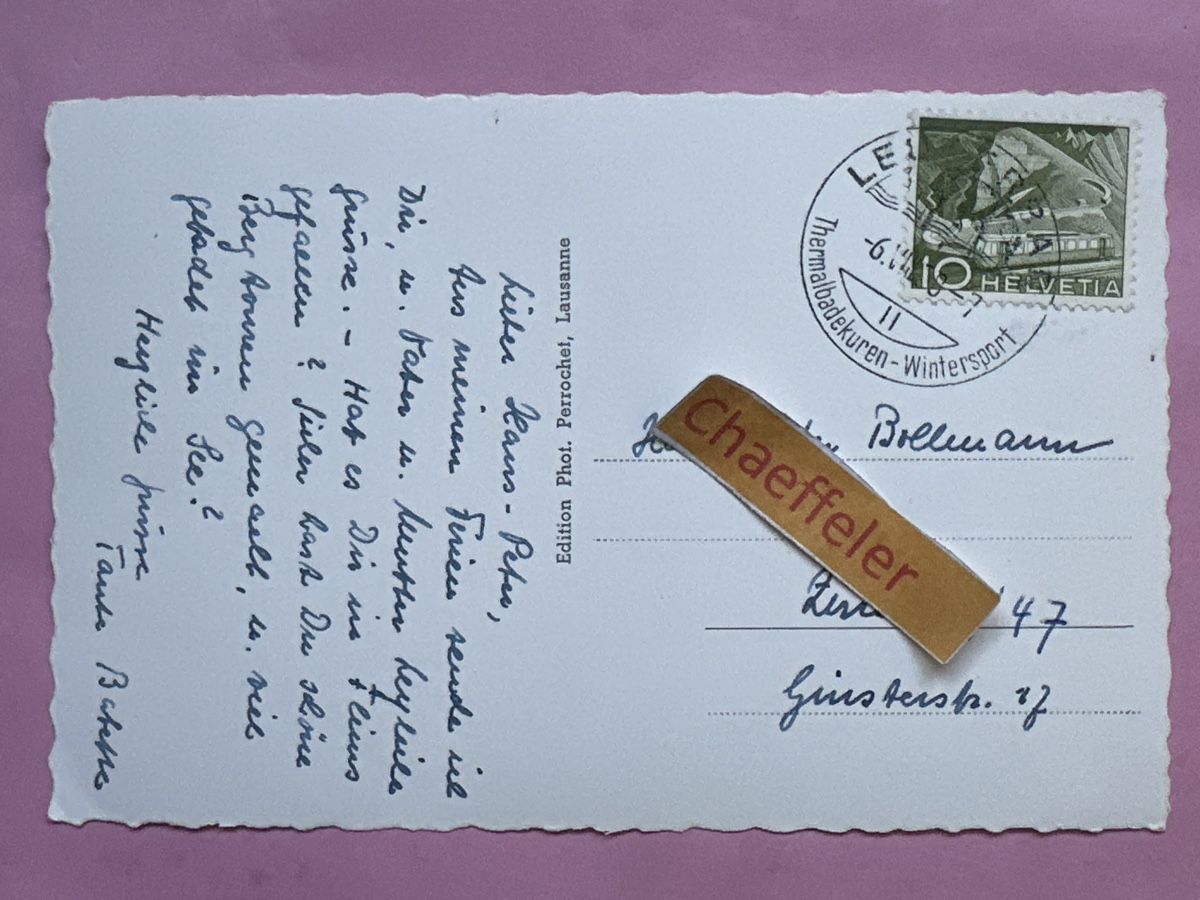 Lieber Hans-Peter,
Aus meinen Ferien sende ich
Dir, u. Vater u. Mutter herzliche
Grüsse. - Hat es Dir in Flims
gefallen? Sicher hast Du schöne
Bergtouren gemacht, u. viel
gebadet im See?
Herzliche Grüsse
Tante Babette
Edition Phot. Perrochet, Lausanne
LEUKERBAD
-6.
11
Thermalbadekuren - Wintersport
10 HELVETIA
Bollmann
Chaeffeler
47
Ginsterstr. 27